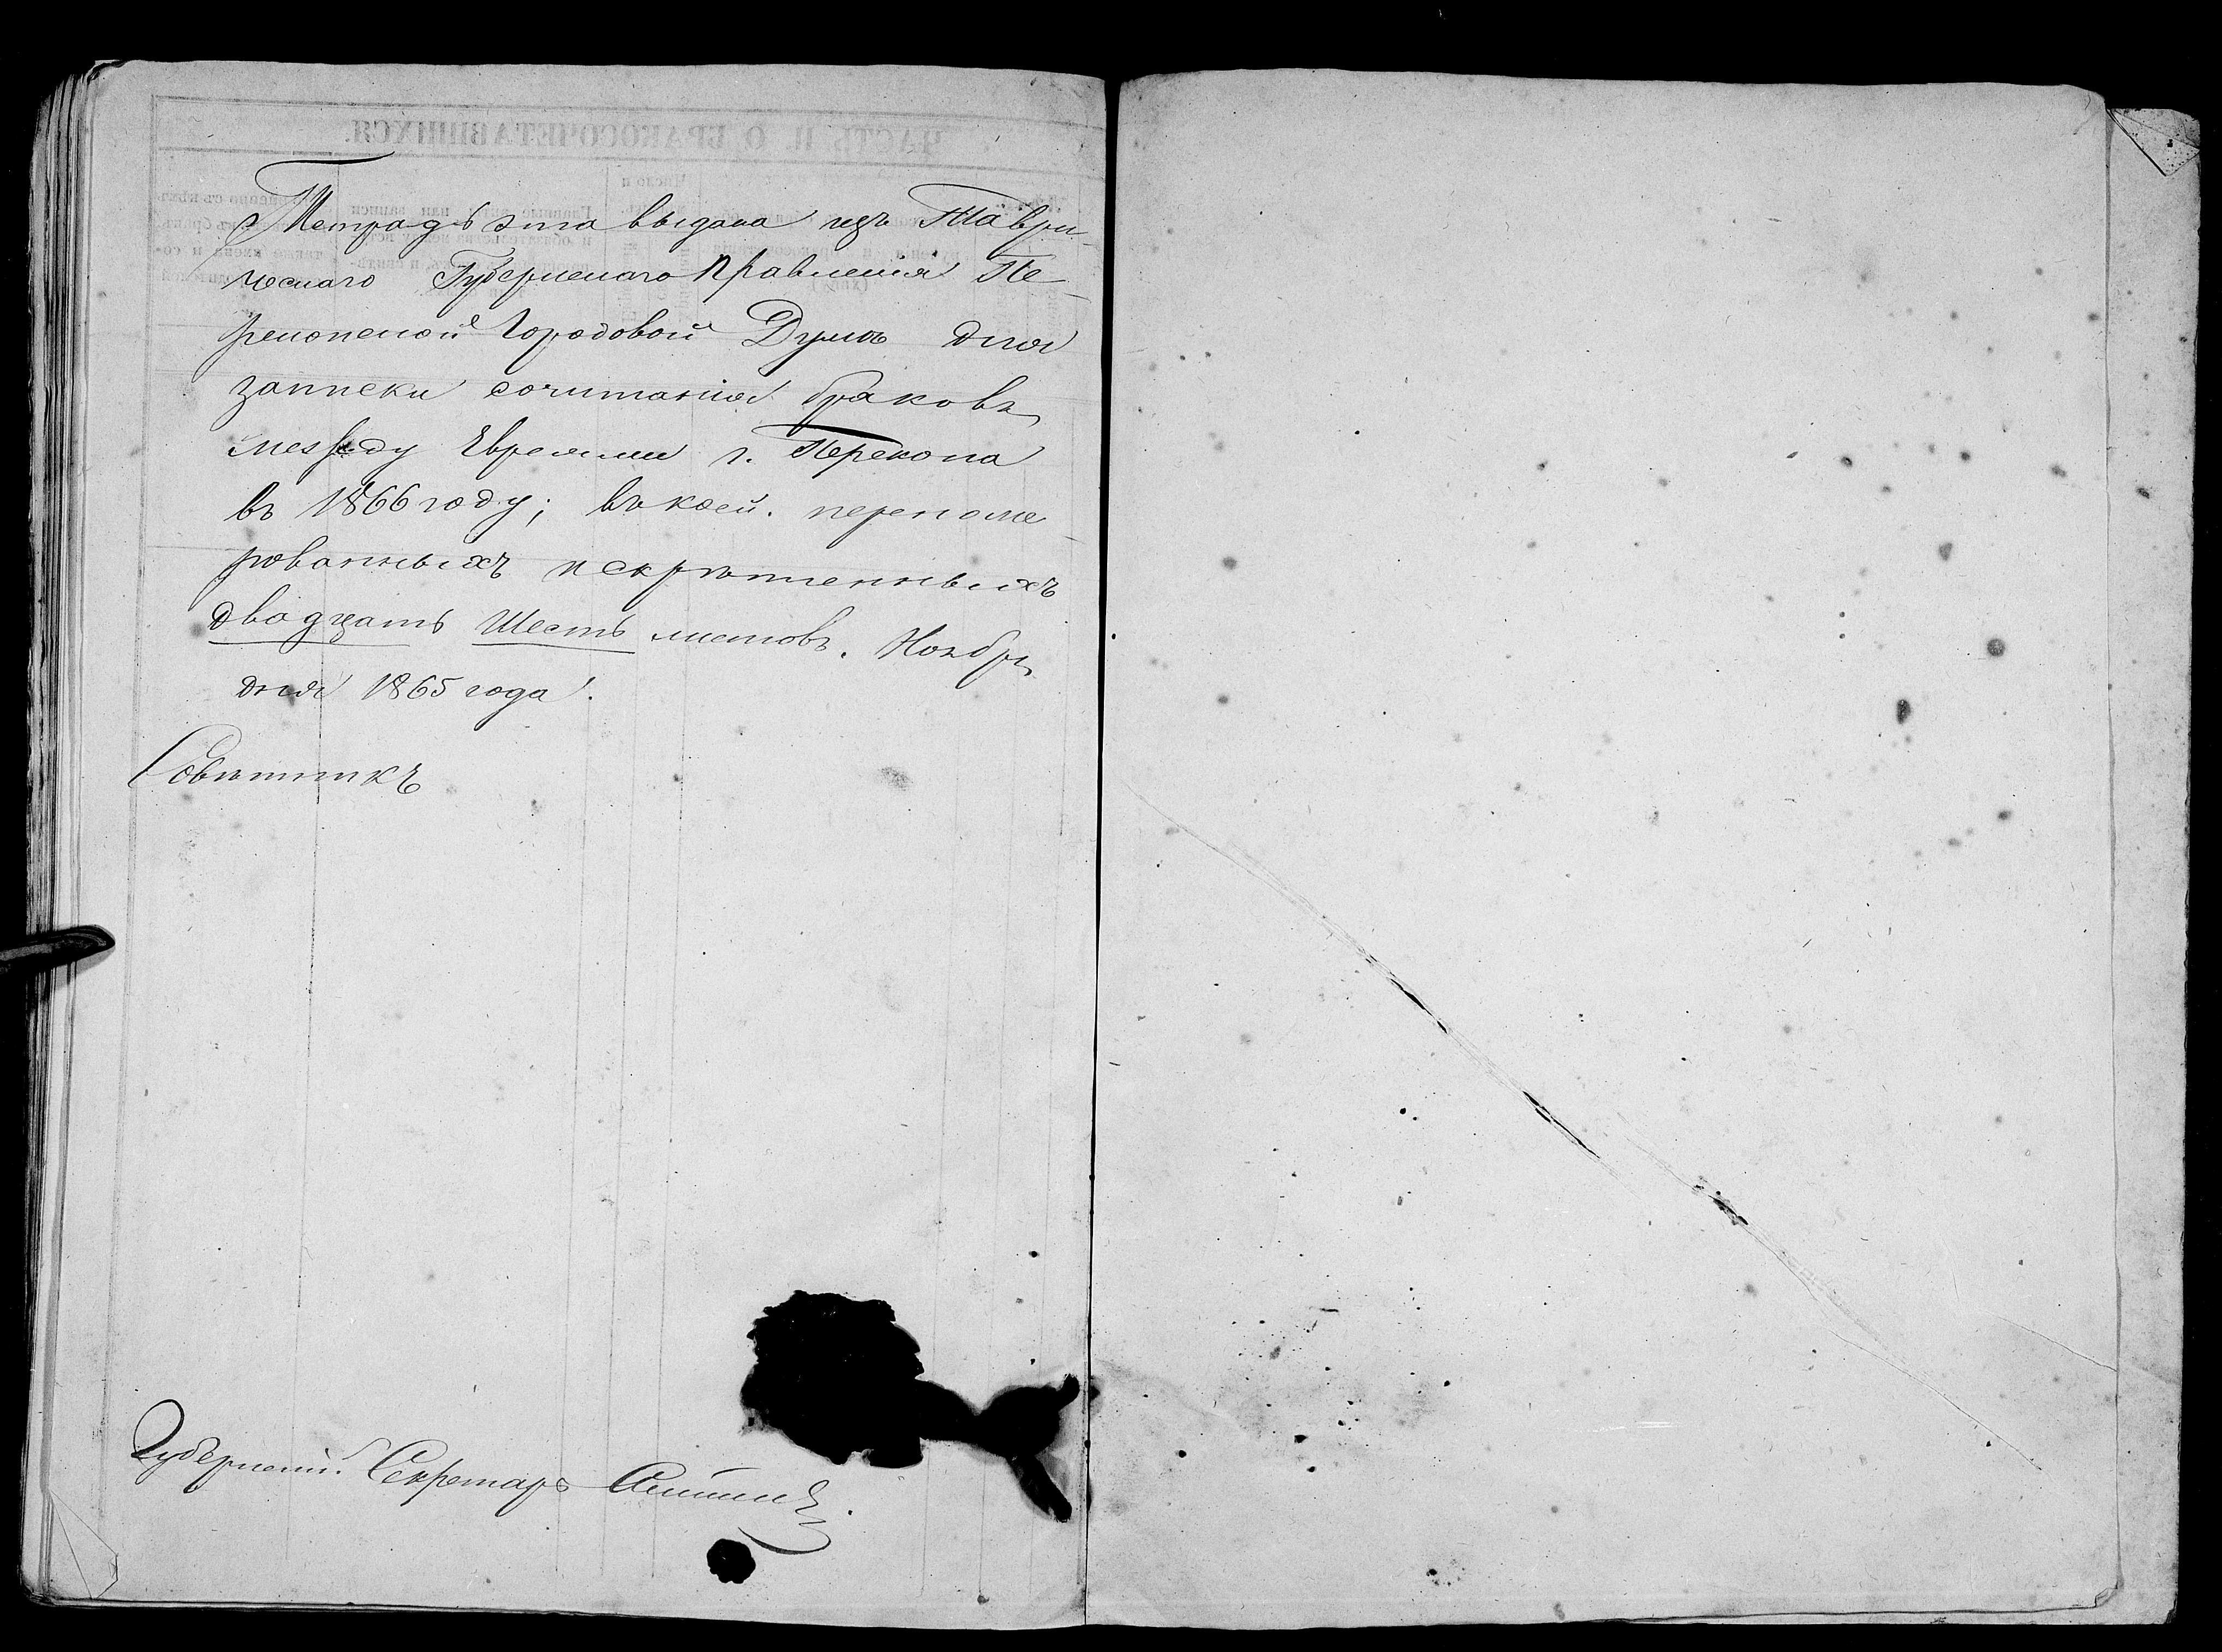 ЧАСТЬ II. О БРАКОСОЧЕТАВШИХСЯ.
Тетрадь эта выдана изъ Таври-
ческаго Губернскаго Правленія Пе-
рекопской Городовой Думѣ для
записки сочитанія браковъ
между Евреями г. Перекопа
въ 1866 году; въ коей перенуме-
рованныхъ и скрѣпленныхъ
двадцать шесть листовъ. Ноября
дня 1865 года.
Совѣтникъ
Губернскій Секретарь